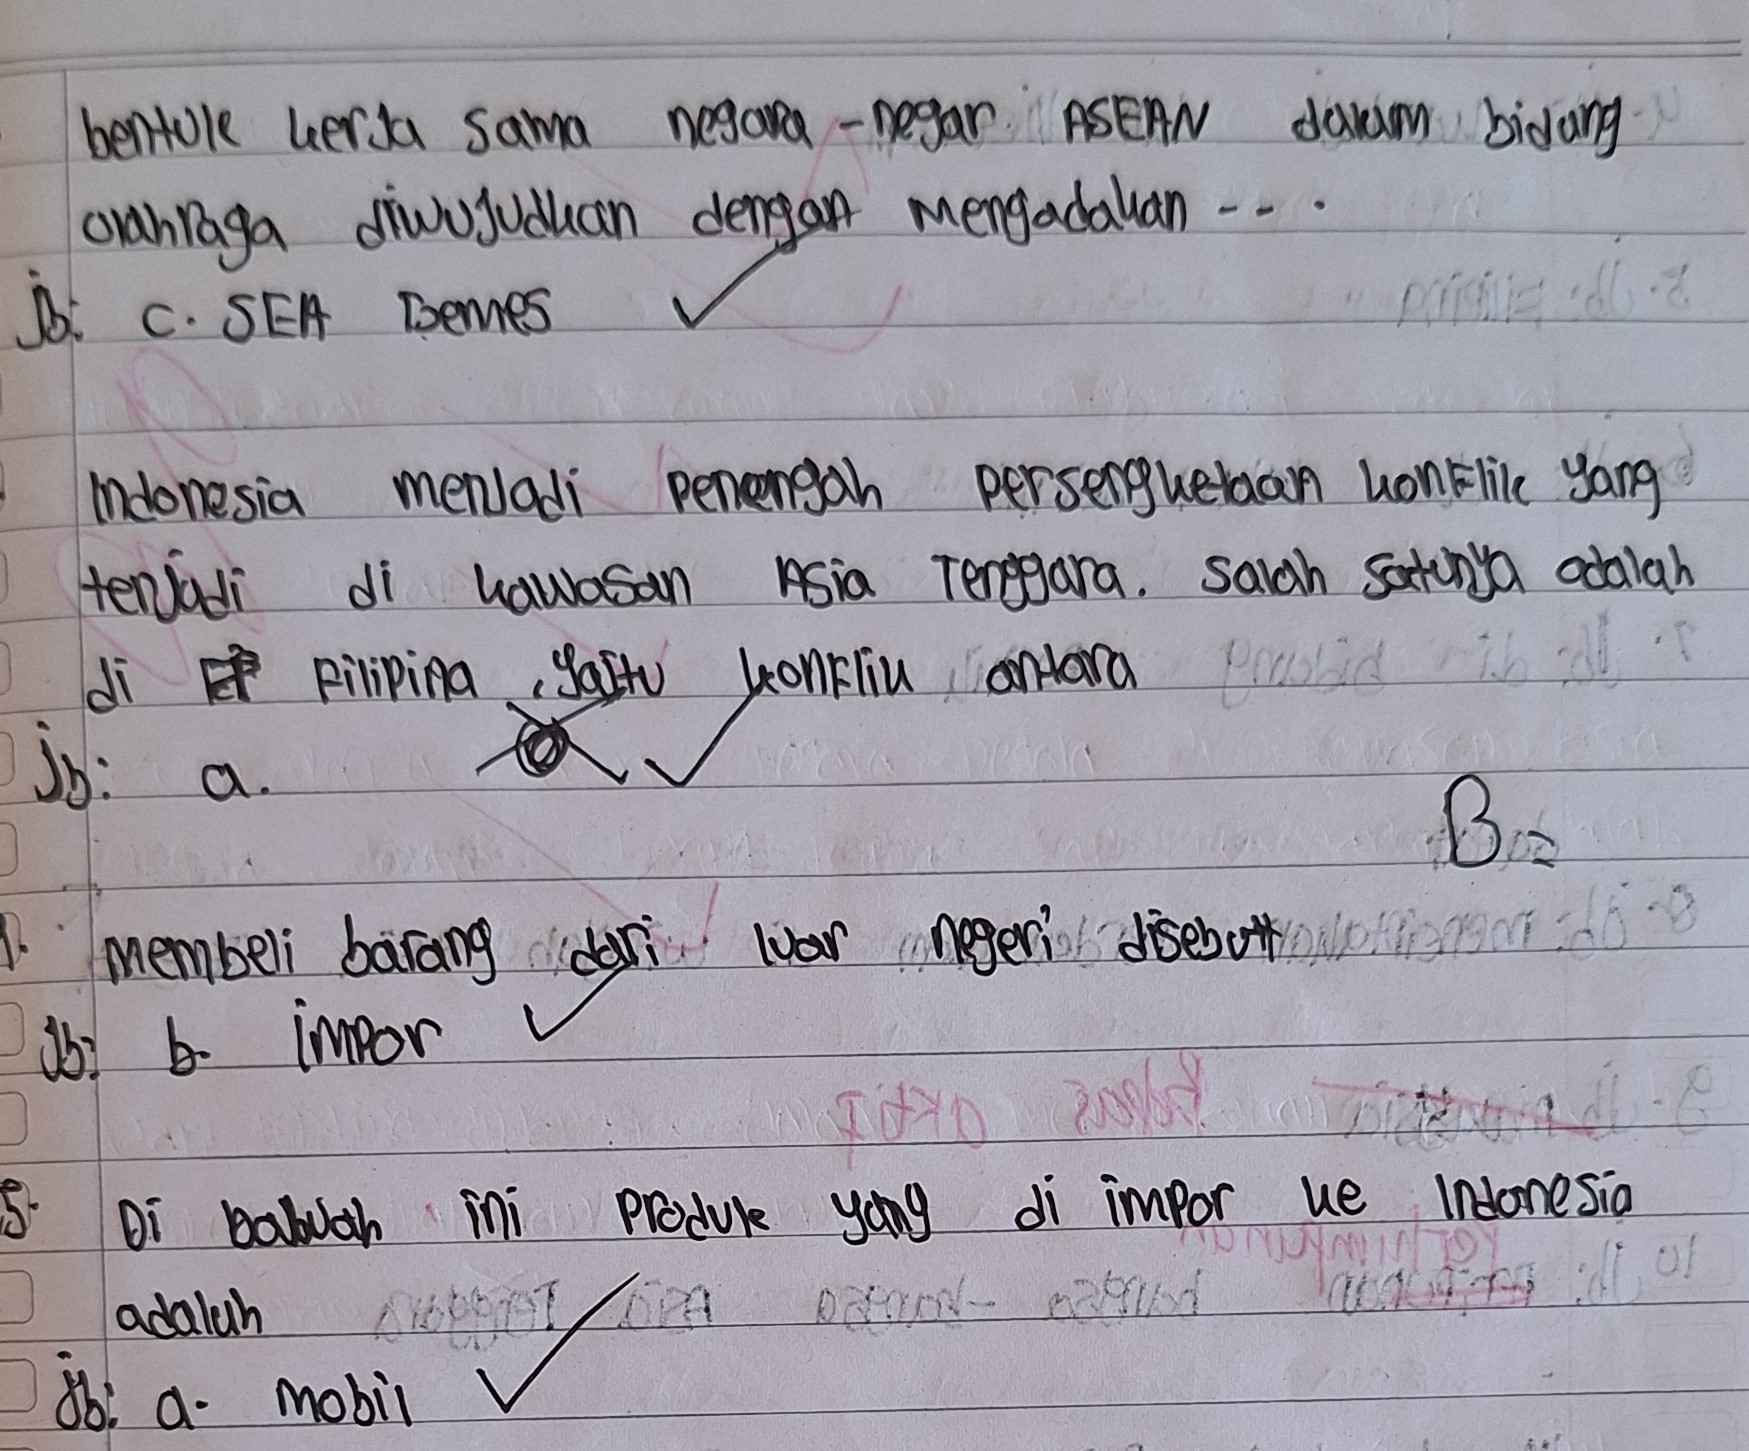 bentuk kerja sama negara-negar ASEAN dalam bidang
olahraga diwujudkan dengan mengadakan - - .
Jb: c. SEA Gemes
Indonesia menjadi penengah persengketaan konflik yang
terjadi di kawasan Asia Tenggara. salah satunya adalah
di Filipina, yaitu konflik antara
Jb: a.
B=
membeli barang dari luar negeri disebut
Jb: b. impor
5. Di bawah ini produk yang di impor ke Indonesia
adalah
Jb: a. mobil